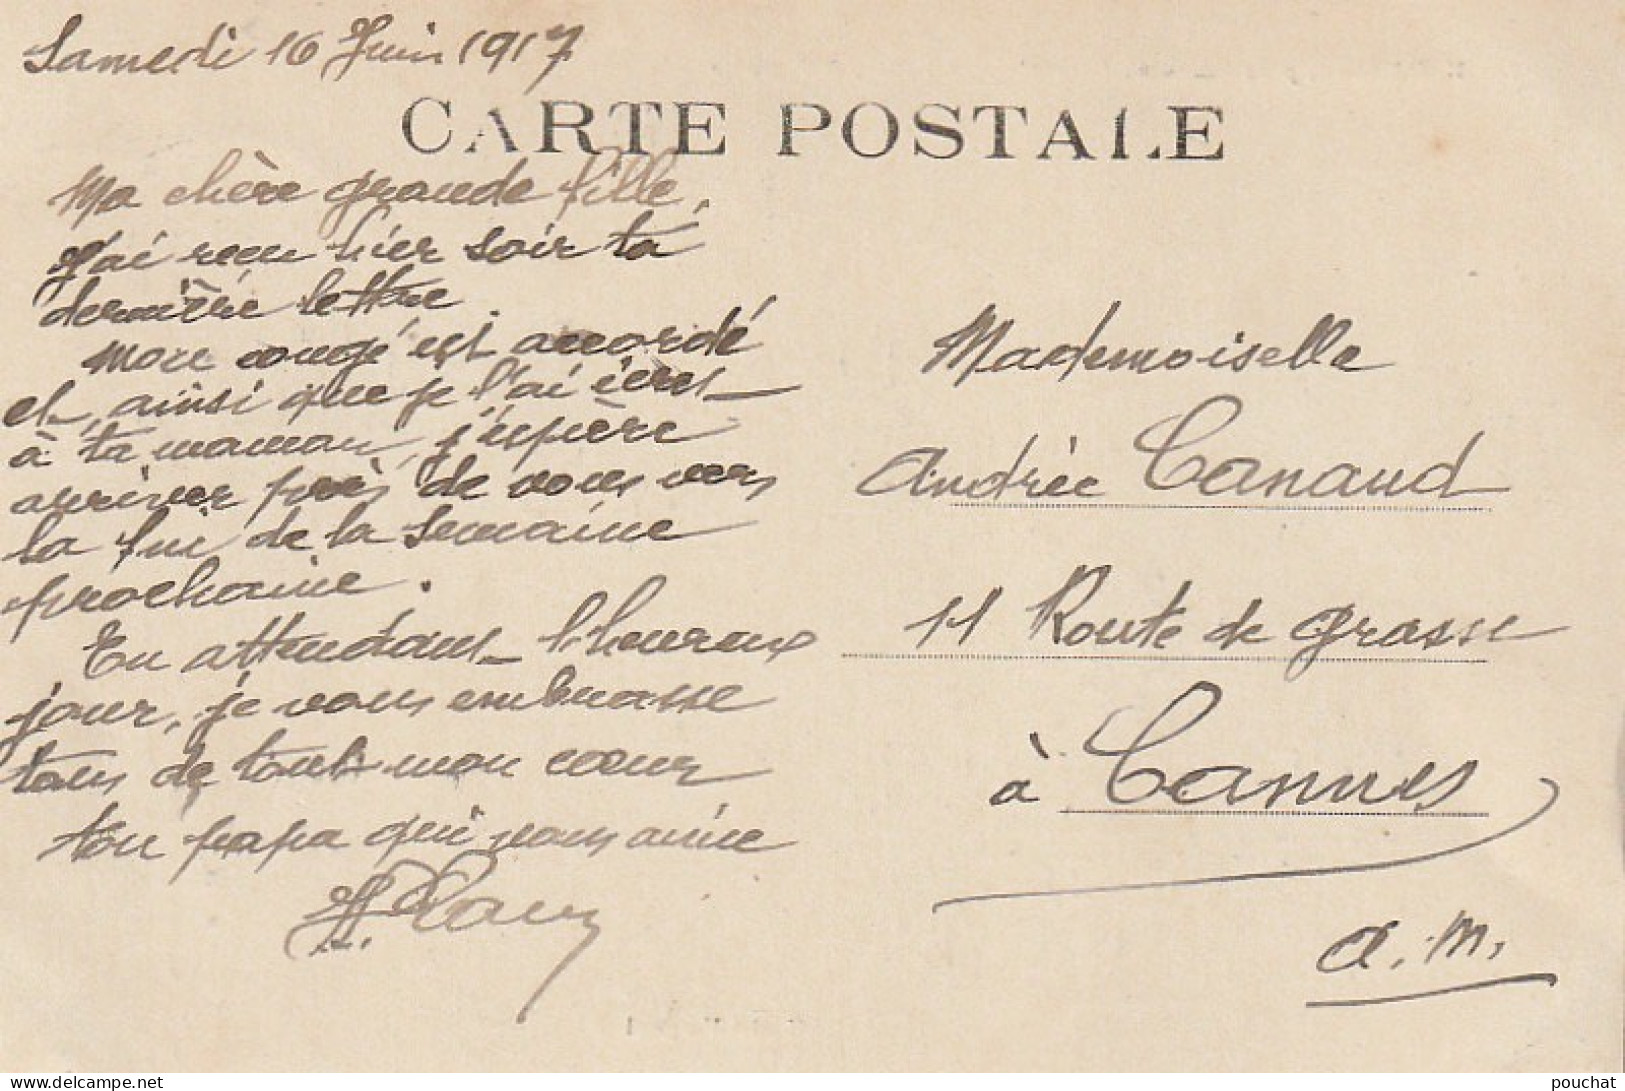 Samedi 16 Juin 1917
CARTE POSTALE
Ma chère grande fille,
J'ai reçu hier soir ta
dernière lettre.
Mon congé est accordé
et, ainsi que je l'ai écrit
à ta maman, j'espère
arriver près de vous vers
la fin de la semaine
prochaine.
En attendant l'heureux
jour, je vous embrasse
tous de tout mon cœur
ton papa qui vous aime
Mademoiselle
Andrée Canaud
11 Route de Grasse
à Cannes
A. M.
pouchat